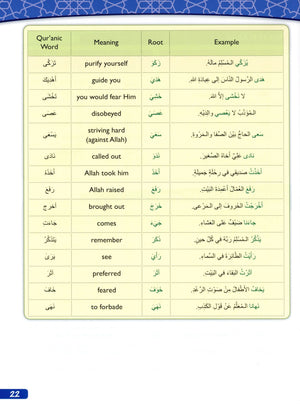 Qur'anic Word Meaning Root Example
تَزَكّى purify yourself زَكَوَ يُزَكّي المُسْلِمُ مالَهُ.
أَهْدِيَكَ guide you هَدَيَ هَدى الرَّسولُ النّاسَ إلى عِبادَةِ اللهِ.
تَخْشى you would fear Him خَشِيَ لا نَخْشى إلاّ اللهَ.
عَصى disobeyed عَصَيَ المُؤَدَّبُ لا يَعْصي والِدَيْهِ.
يَسْعى striving hard (against Allah) سَعَيَ سَعى الحاجُّ بَيْنَ الصَّفا والمَرْوَةِ.
نادى called out نَدَوَ نادى عَلِيٌّ أخاهُ الصَّغيرَ.
أَخَذَ Allah took him أَخَذَ أَخَذْتُ صَديقي في رِحْلَةٍ جَميلَةٍ.
رَفَعَ Allah raised رَفَعَ رَفَعَ العُمّالُ أعْمِدَةَ البَيْتِ.
أَخْرَجَ brought out خَرَجَ أَخْرَجْتُ الخَروفَ إلى المَرْعى.
جاءَت comes جَيَءَ جاءَنا ضَيْفٌ عَلى العَشاءِ.
يَتَذَكَّرُ remember ذَكَرَ يَذْكُرُ المُسْلِمُ رَبَّهُ في كُلِّ حينٍ.
يَرى see رَأَيَ رَأَيْتُ الطّائِرَةَ في السَّماءِ.
آثَرَ preferred أَثَرَ آثَرْتُ البَقاءَ في البَيْتِ.
خافَ feared خَوَفَ يَخافُ الأطْفالُ مِنْ صَوْتِ الرَّعْدِ.
نَهى to forbade نَهَيَ نَهانا المُعَلِّمُ عَنْ قَوْلِ الكَذِبِ.
22